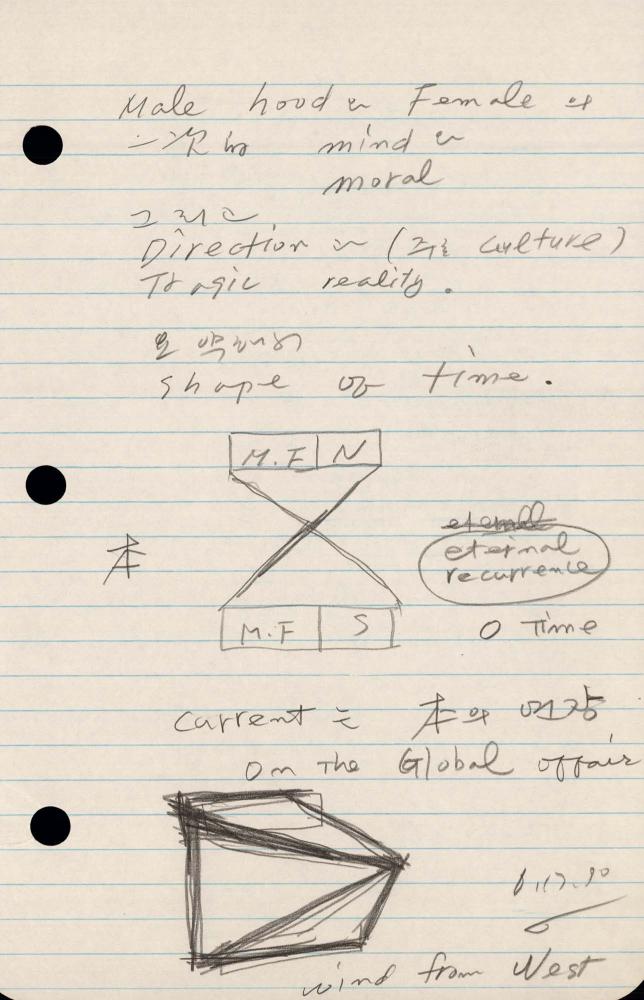 Male hood와 Female의
一次的 mind와
moral
그리고
Direction과 (주로 culture)
Tragic reality.
shape of time.
M.F N
本
eternal
eternal
recurrence
M.F S
0 Time
Current는 本의 연장
on the Global affair
wind from West